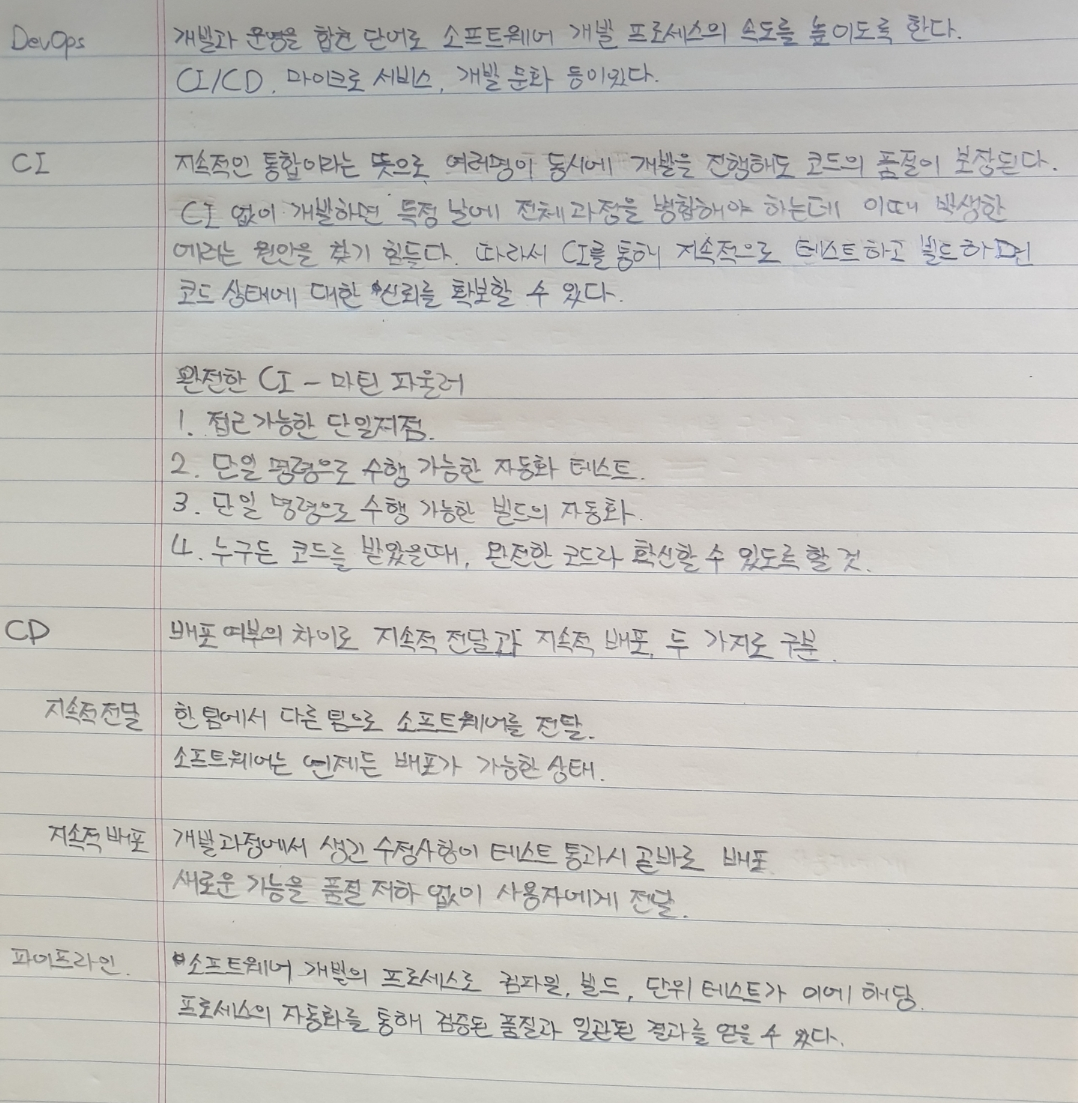 DevOps 개발과 운영을 합친 단어로 소프트웨어 개발 프로세스의 속도를 높이도록 한다.
CI/CD, 마이크로 서비스, 개발 문화 등이있다.
CI 지속적인 통합이라는 뜻으로 여러명이 동시에 개발을 진행해도 코드의 품질이 보장된다.
CI 없이 개발하면 특정 날에 전체 과정을 병합해야 하는데 이때 발생한
에러는 원인을 찾기 힘들다. 따라서 CI를 통해 지속적으로 테스트하고 빌드하면
코드 상태에 대한 신뢰를 확보할 수 있다.
완전한 CI - 마틴 파울러
1. 접근가능한 단일지점.
2. 단일 명령으로 수행 가능한 자동화 테스트.
3. 단일 명령으로 수행 가능한 빌드의 자동화.
4. 누구든 코드를 받았을때, 완전한 코드라 확신할 수 있도록 할 것.
CD 배포 여부의 차이로 지속적 전달과 지속적 배포, 두 가지로 구분.
지속적 전달 한 팀에서 다른 팀으로 소프트웨어를 전달.
소프트웨어는 언제든 배포가 가능한 상태.
지속적 배포 개발과정에서 생긴 수정사항이 테스트 통과시 곧바로 배포
새로운 기능을 품질 저하 없이 사용자에게 전달.
파이프라인. 소프트웨어 개발의 프로세스로 컴파일, 빌드, 단위 테스트가 이에 해당.
프로세스의 자동화를 통해 검증된 품질과 일관된 결과를 얻을 수 있다.